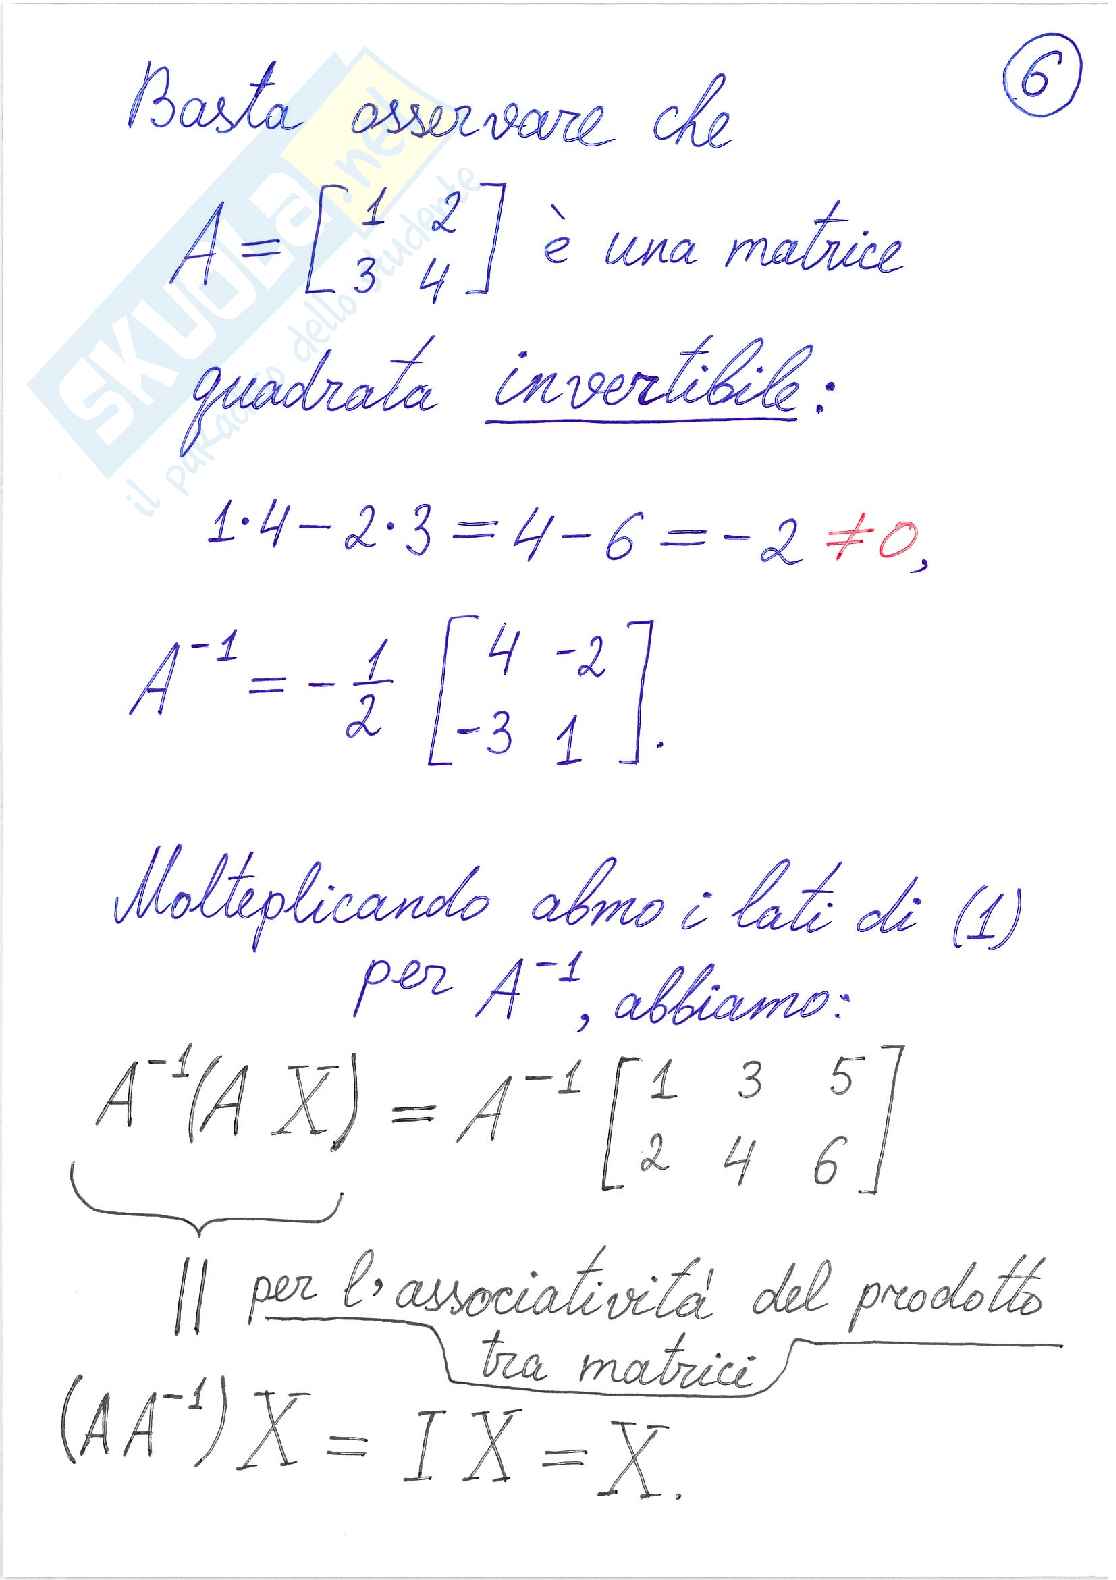 6
Basta osservare che
A = [1 2
3 4] è una matrice
quadrata invertibile:
1·4 – 2·3 = 4 – 6 = –2 ≠ 0,
A⁻¹ = – 1/2 [4 -2
-3 1].
Molteplicando abmo i lati di (1)
per A⁻¹, abbiamo:
A⁻¹(A X) = A⁻¹ [1 3 5
2 4 6]
|| per l'associatività del prodotto
tra matrici
(A A⁻¹) X = I X = X.
SKUOLa.net
il paradiso dello studente